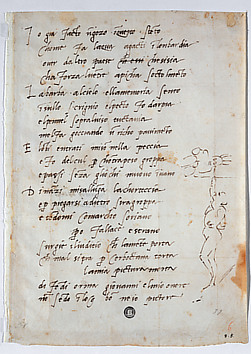 I o gia facto ngozo in questo stento
chome fa lacqua agacti in lombardia
over daltro paese che sisia
cha forza luentre apicha socto lmento
L abarba alcielo ellamemoria sento
in sullo scrignio elpecto fo darpia
elpennel sopraluiso tuctavia
melfa gocciando un richo pauimento
E lobi entrati miso nella peccia
e fo delcul p chotrapeso groppa
e passi seza gliochi muouo inuano
D inazi misallunga lachorteccia
ep piegarsi adietro siragroppa
e tendomi comarcho soriano
po fallace e strano
surgie iluditio ch lamente porta
ch mal si p cerboctana torta
lamia pictura morta
difedi orma giouanni elmio onore
no sedo i loco bo ne io pictore